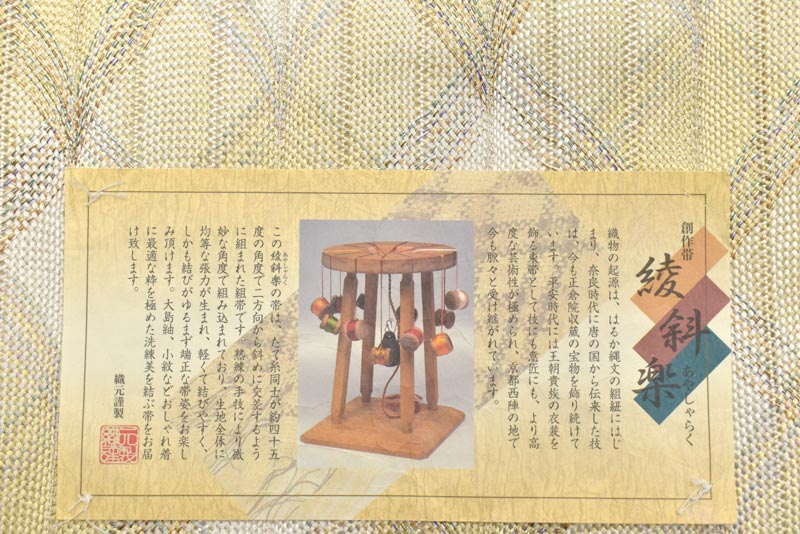 創作帯
綾斜楽
あやしゃらく
織物の起源は、はるか縄文の組紐にはじ
まり、奈良時代に唐の国から伝来した技
は、今も正倉院収蔵の宝物を飾り続けて
います。平安時代には王朝貴族の衣装を
飾る束帯として技にも意匠にも、より高
度な芸術性が極められ、京都西陣の地で
今も脈々と受け継がれています。
この綾斜楽の帯は、たて糸同士が約四十五
あやしゃらく
度の角度で二方向から斜めに交差するよう
に組まれた組帯です。熟練の手技により微
妙な角度で組み込まれており、生地全体に
均等な張力が生まれ、軽くて結びやすく、
しかも結びがゆるまず端正な帯姿をお楽し
み頂けます。大島紬、小紋などおしゃれ着
に最適な粋を極めた洗練美を結ぶ帯をお届
け致します。
織元謹製